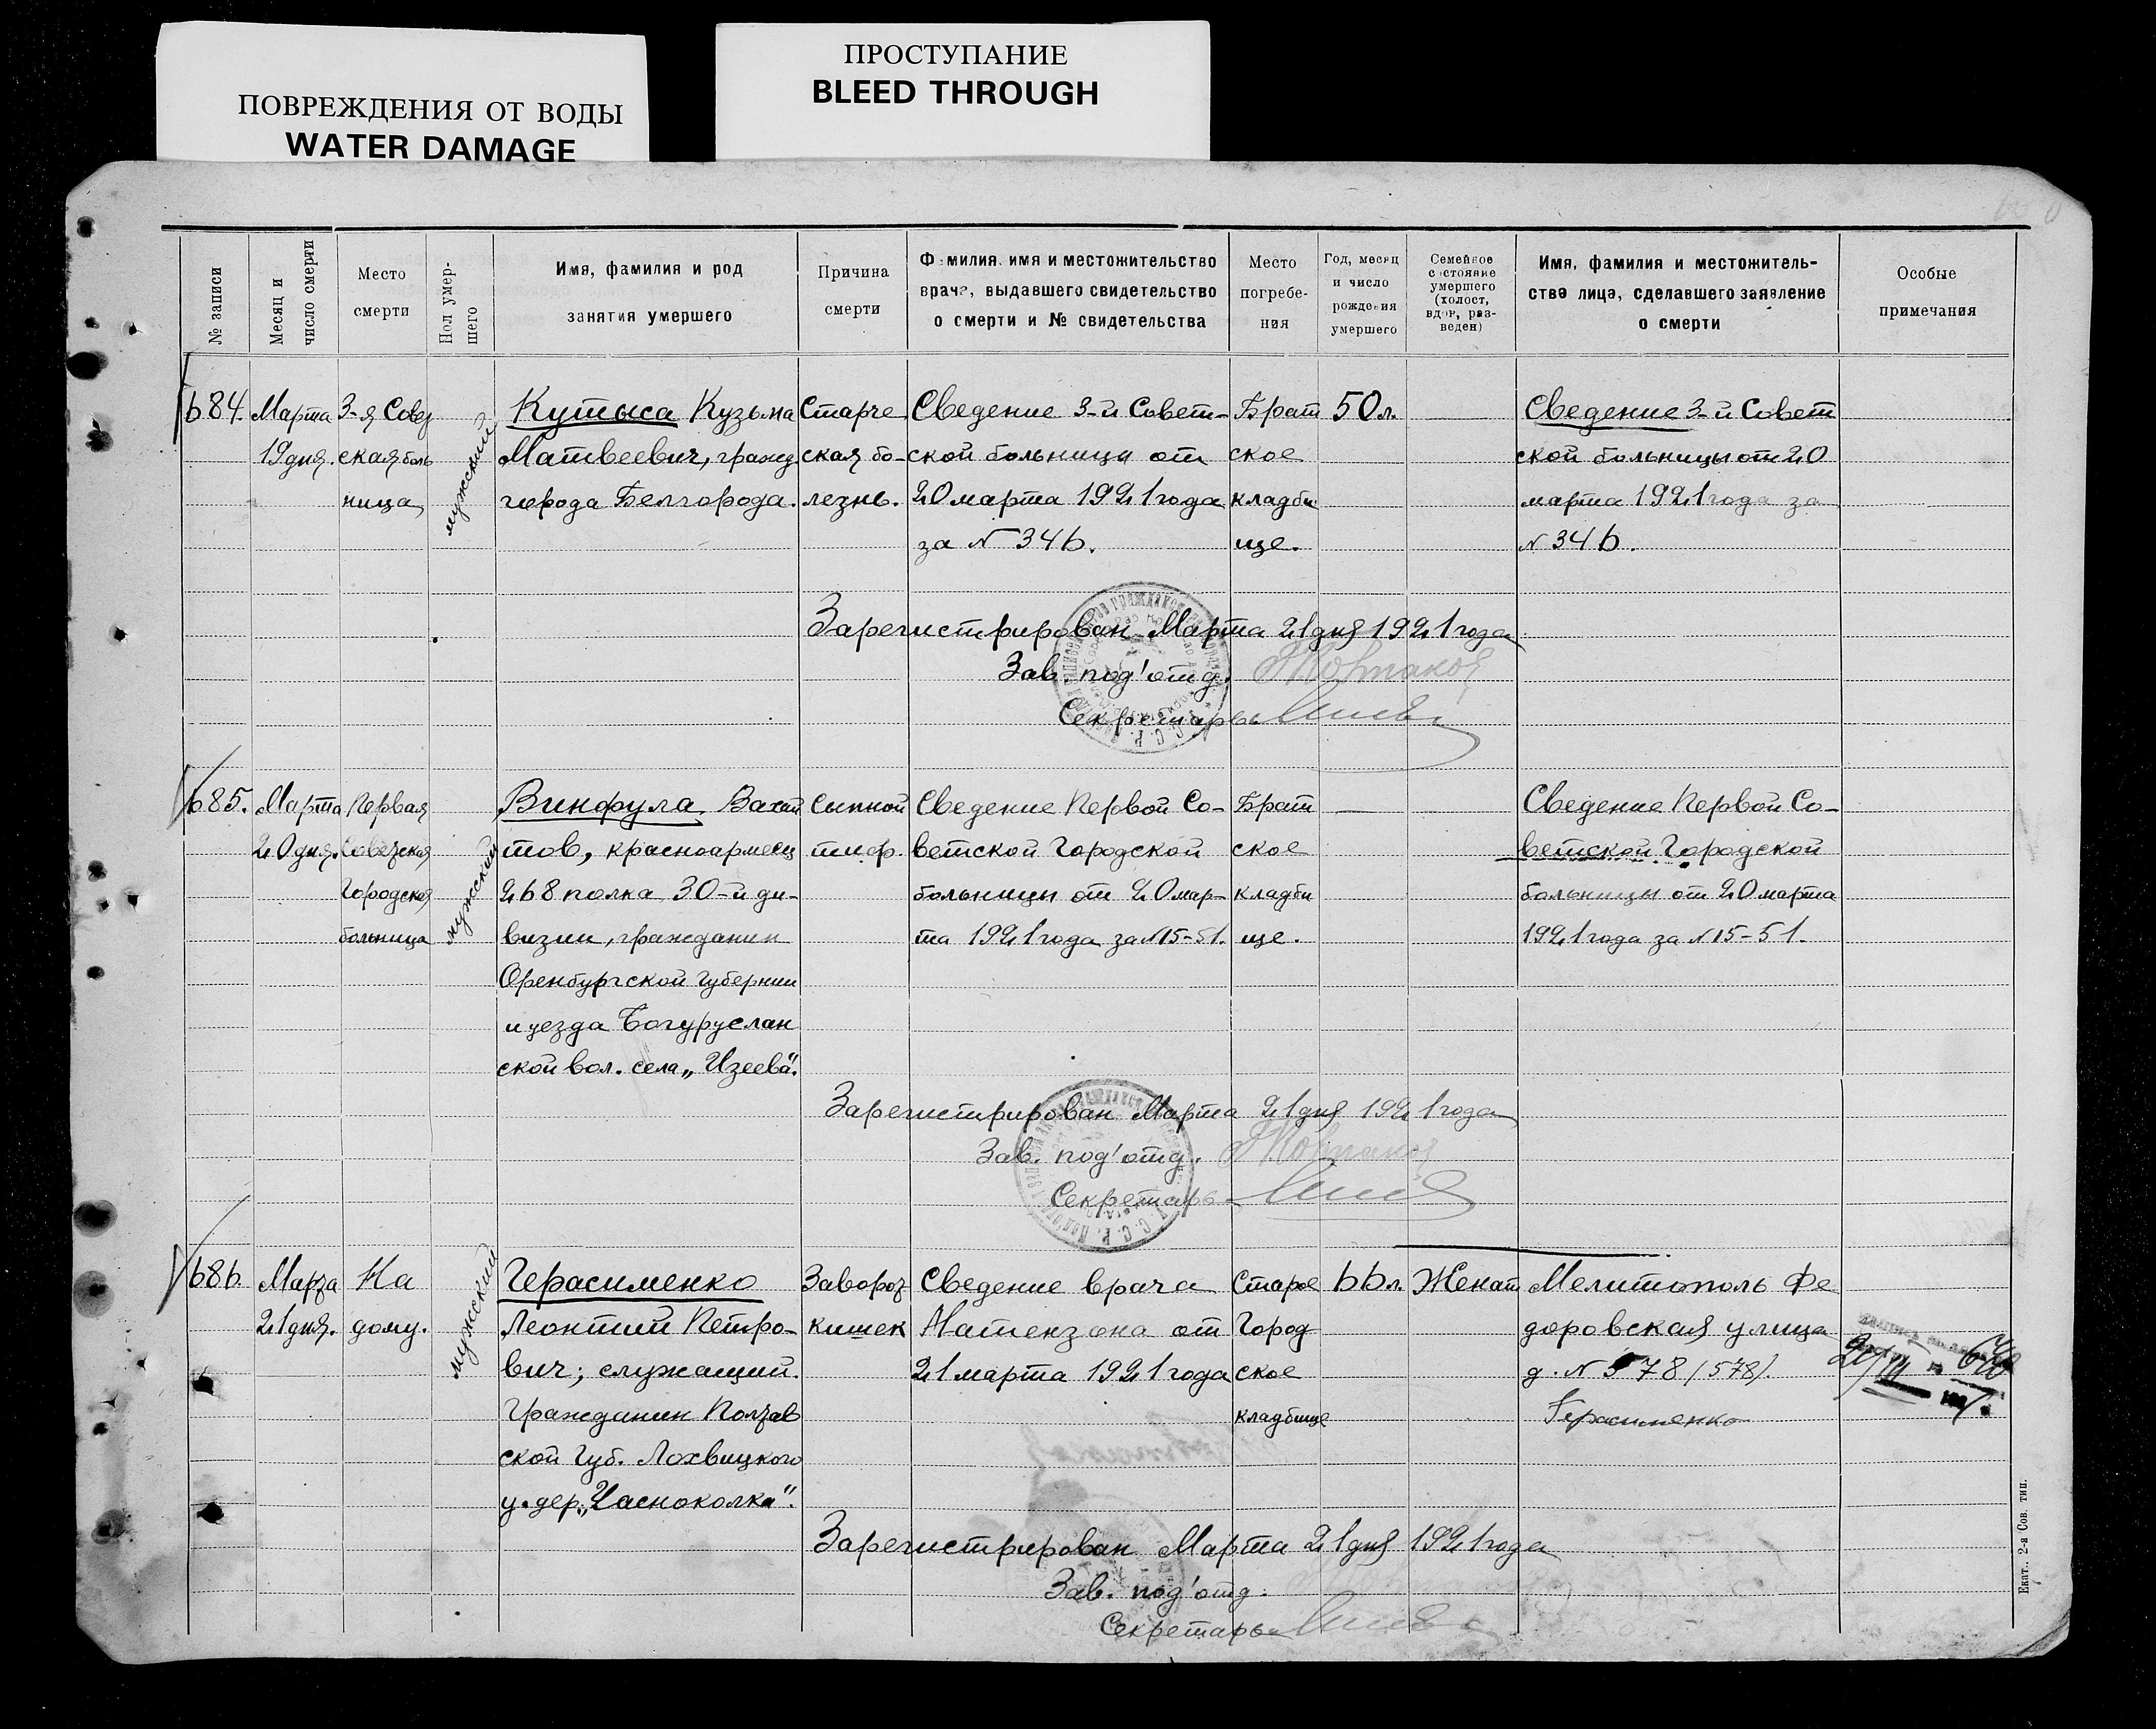 ПОВРЕЖДЕНИЯ ОТ ВОДЫ
WATER DAMAGE
ПРОСТУПАНИЕ
BLEED THROUGH
№ записи
Месяц и
число смерти
Место
смерти
Пол умер-
шего
Имя, фамилия и род
занятия умершего
Причина
смерти
Фамилия, имя и местожительство
врача, выдавшего свидетельство
о смерти и № свидетельства
Место
погребе-
ния
Год, месяц
и число
рождения
умершего
Семейное
состояние
умершего
(холост,
вдов, раз-
веден)
Имя, фамилия и местожитель-
ство лица, сделавшего заявление
о смерти
Особые
примечания
684.
Марта
19 дня.
3-я Совет
ская боль
ница
мужский
Кутыса Кузьма
Матвеевич, гражд
города Белгорода.
Старче
ская бо-
лезнь.
Сведение 3-й Совет-
ской больницы от
20 марта 1921 года
за N 346.
Брат
ское
кладби
ще.
50 л.
Сведение 3-й Совет
ской больницы от 20
марта 1921 года за
N 346.
Зарегистрирован Марта 21 дня 1921 года
Зав. под'отд.
Секретарь
685.
Марта
20 дня.
Первая
Советская
Городская
больница
мужский
Винфула Вахи
тов, красноармеец
268 полка 30-й ди-
визии, гражданин
Оренбургской Губернии
и уезда Богуруслан
ской вол. села „Изеева".
Сыпной
тиф.
Сведение Первой Со-
ветской Городской
больницы от 20 мар-
та 1921 года за N 15-51.
Брат
ское
кладби
ще.
Сведение Первой Со-
ветской Городской
больницы от 20 марта
1921 года за N 15-51.
Зарегистрирован Марта 21 дня 1921 года
Зав. под'отд.
Секретарь
686.
Марта
21 дня.
На
дому.
мужский
Герасименко
Леонтий Петро-
вич; служащий.
Гражданин Полтав
ской Губ. Лохвицкого
у. дер. „Часноколка".
Заворот
кишек
Сведение врача
Натензона от
21 марта 1921 года
Старое
Город
ское
кладбище
66 л.
Женат
Мелитополь Фе
доровская улица
д. N 578 (578).
Герасименко
Зарегистрирован Марта 21 дня 1921 года
Зав. под'отд.
Секретарь
Екат.. 2-я Сов. тип.